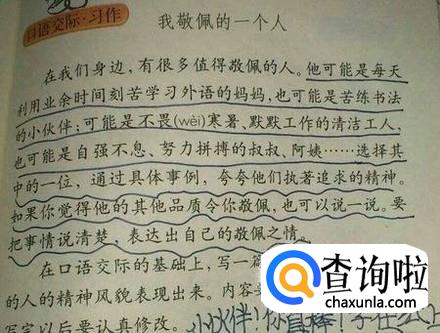 口语交际·习作
我敬佩的一个人
在我们身边，有很多值得敬佩的人。他可能是每天
利用业余时间刻苦学习外语的妈妈，也可能是苦练书法
的小伙伴；可能是不畏(wèi)寒暑、默默工作的清洁工人，
也可能是自强不息、努力拼搏的叔叔、阿姨……选择其
中的一位，通过具体事例，夸夸他们执著追求的精神。
如果你觉得他的其他品质令你敬佩，也可以说一说。要
把事情说清楚，表达出自己的敬佩之情。
在口语交际的基础上，写一篇
的人的精神风貌表现出来。内容要
写完以后要认真修改。小伙伴！你真棒！
查询啦
chaxunla.com